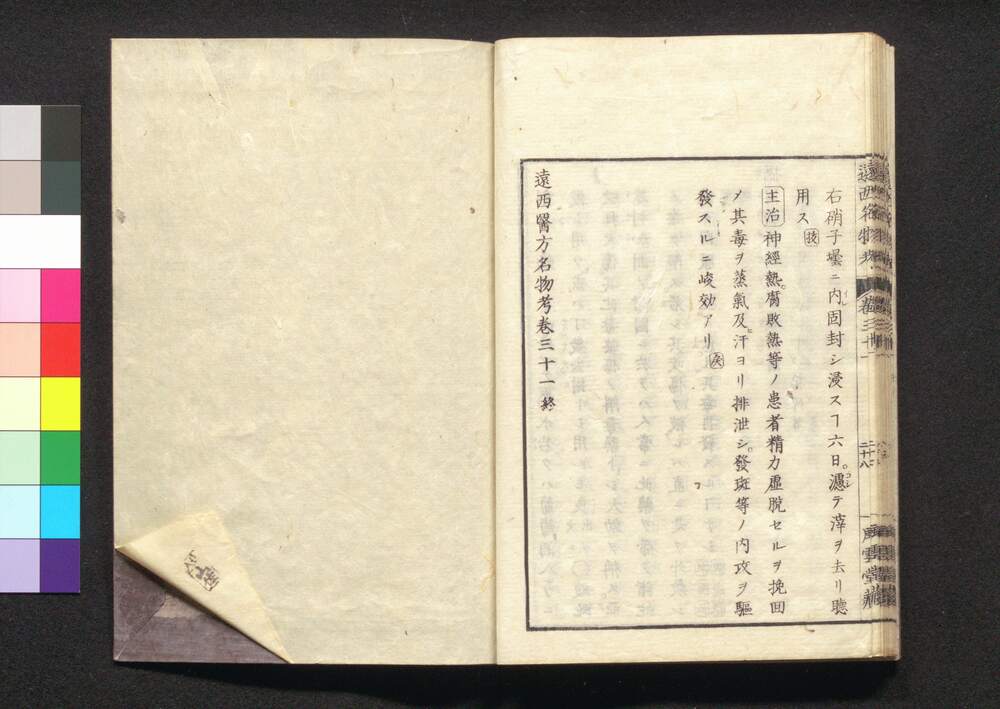 右硝子壜ニ内固封シ浸スヿ六日。濾テ滓ヲ去リ聽
用ス 技
主治 神經熱。腐敗熱等ノ患者精力虚脱セルヲ挽回
〆其毒ヲ蒸氣及。汗ヨリ排泄シ。發斑等ノ内攻ヲ驅
發スルニ峻効アリ
遠西醫方名物考卷三十一終
遠西名物考
卷三十一
二十八